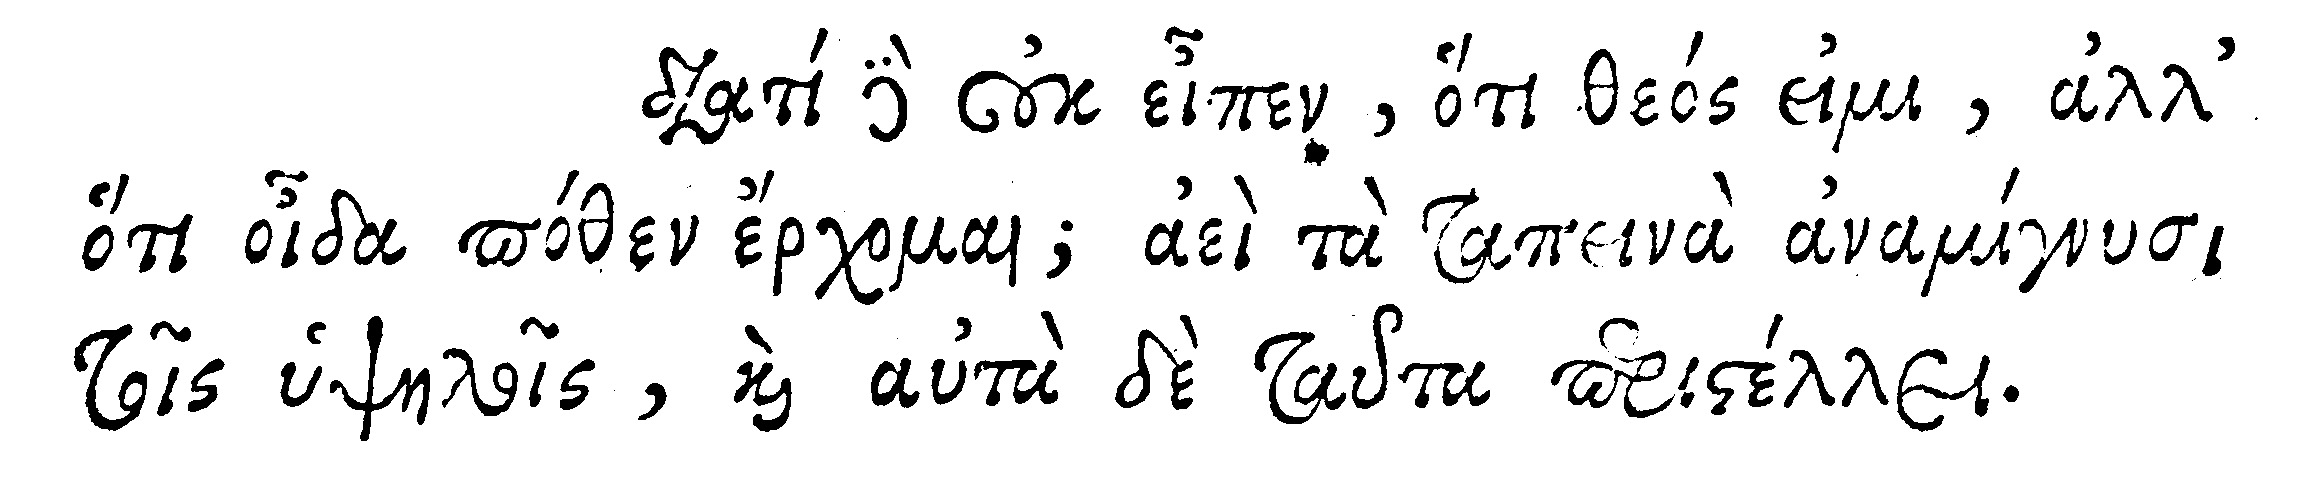 Διατί δὲ οὐκ εἶπεν, ὅτι θεός εἰμι, ἀλλ’
ὅτι οἶδα πόθεν ἔρχομαι; ἀεὶ τὰ ταπεινὰ ἀναμίγνυσι
τοῖς ὑψηλοῖς, καὶ αὐτὰ δὲ ταῦτα περιστέλλει.